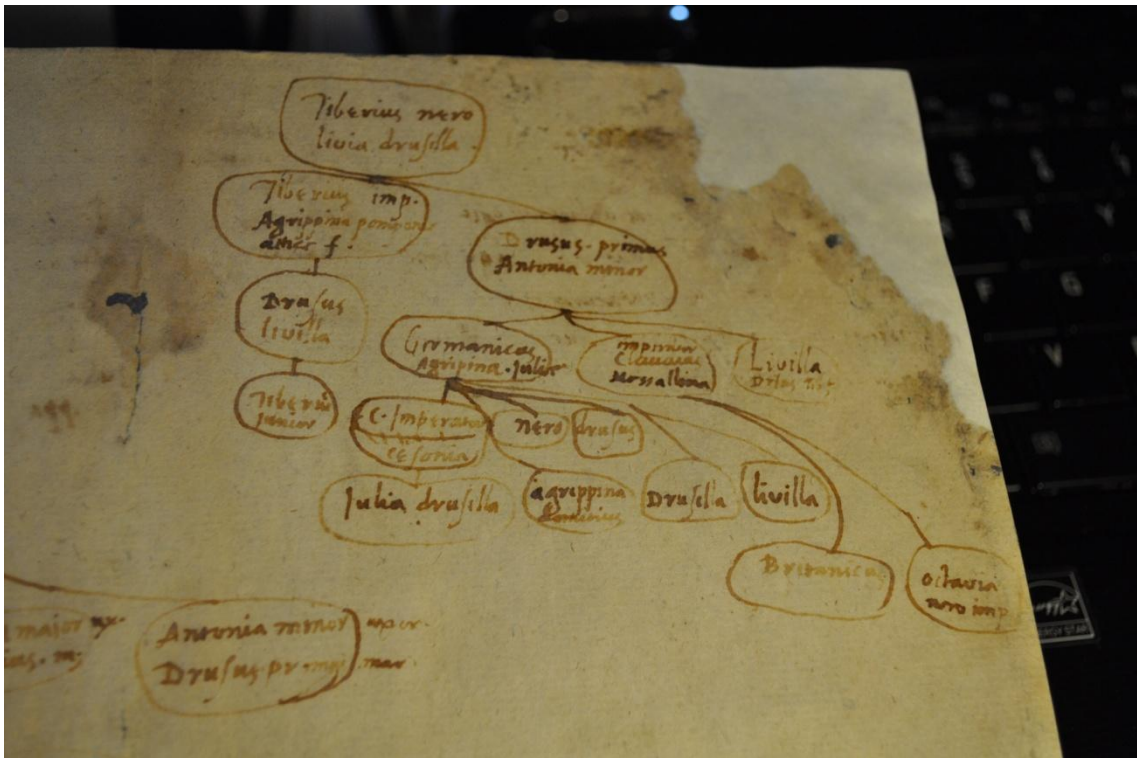 Tiberius nero
livia drusilla.
Tiberius imp.
Agrippina pomponii
attici f.
Drusus primus
Antonia minor
Drusus
livilla
Germanicus
Agripina Julie
imperator
Claudius
Messallina
Livilla
Drusus Tib.
Tiberius
iunior
C. Imperator
Cesonia
nero
drusus
Julia drusilla
agrippina
domitius
Drusilla
livilla
Britanicus
octavia
nero imp
maior ux.
Antonia minor uxor.
Drusus primus mar.